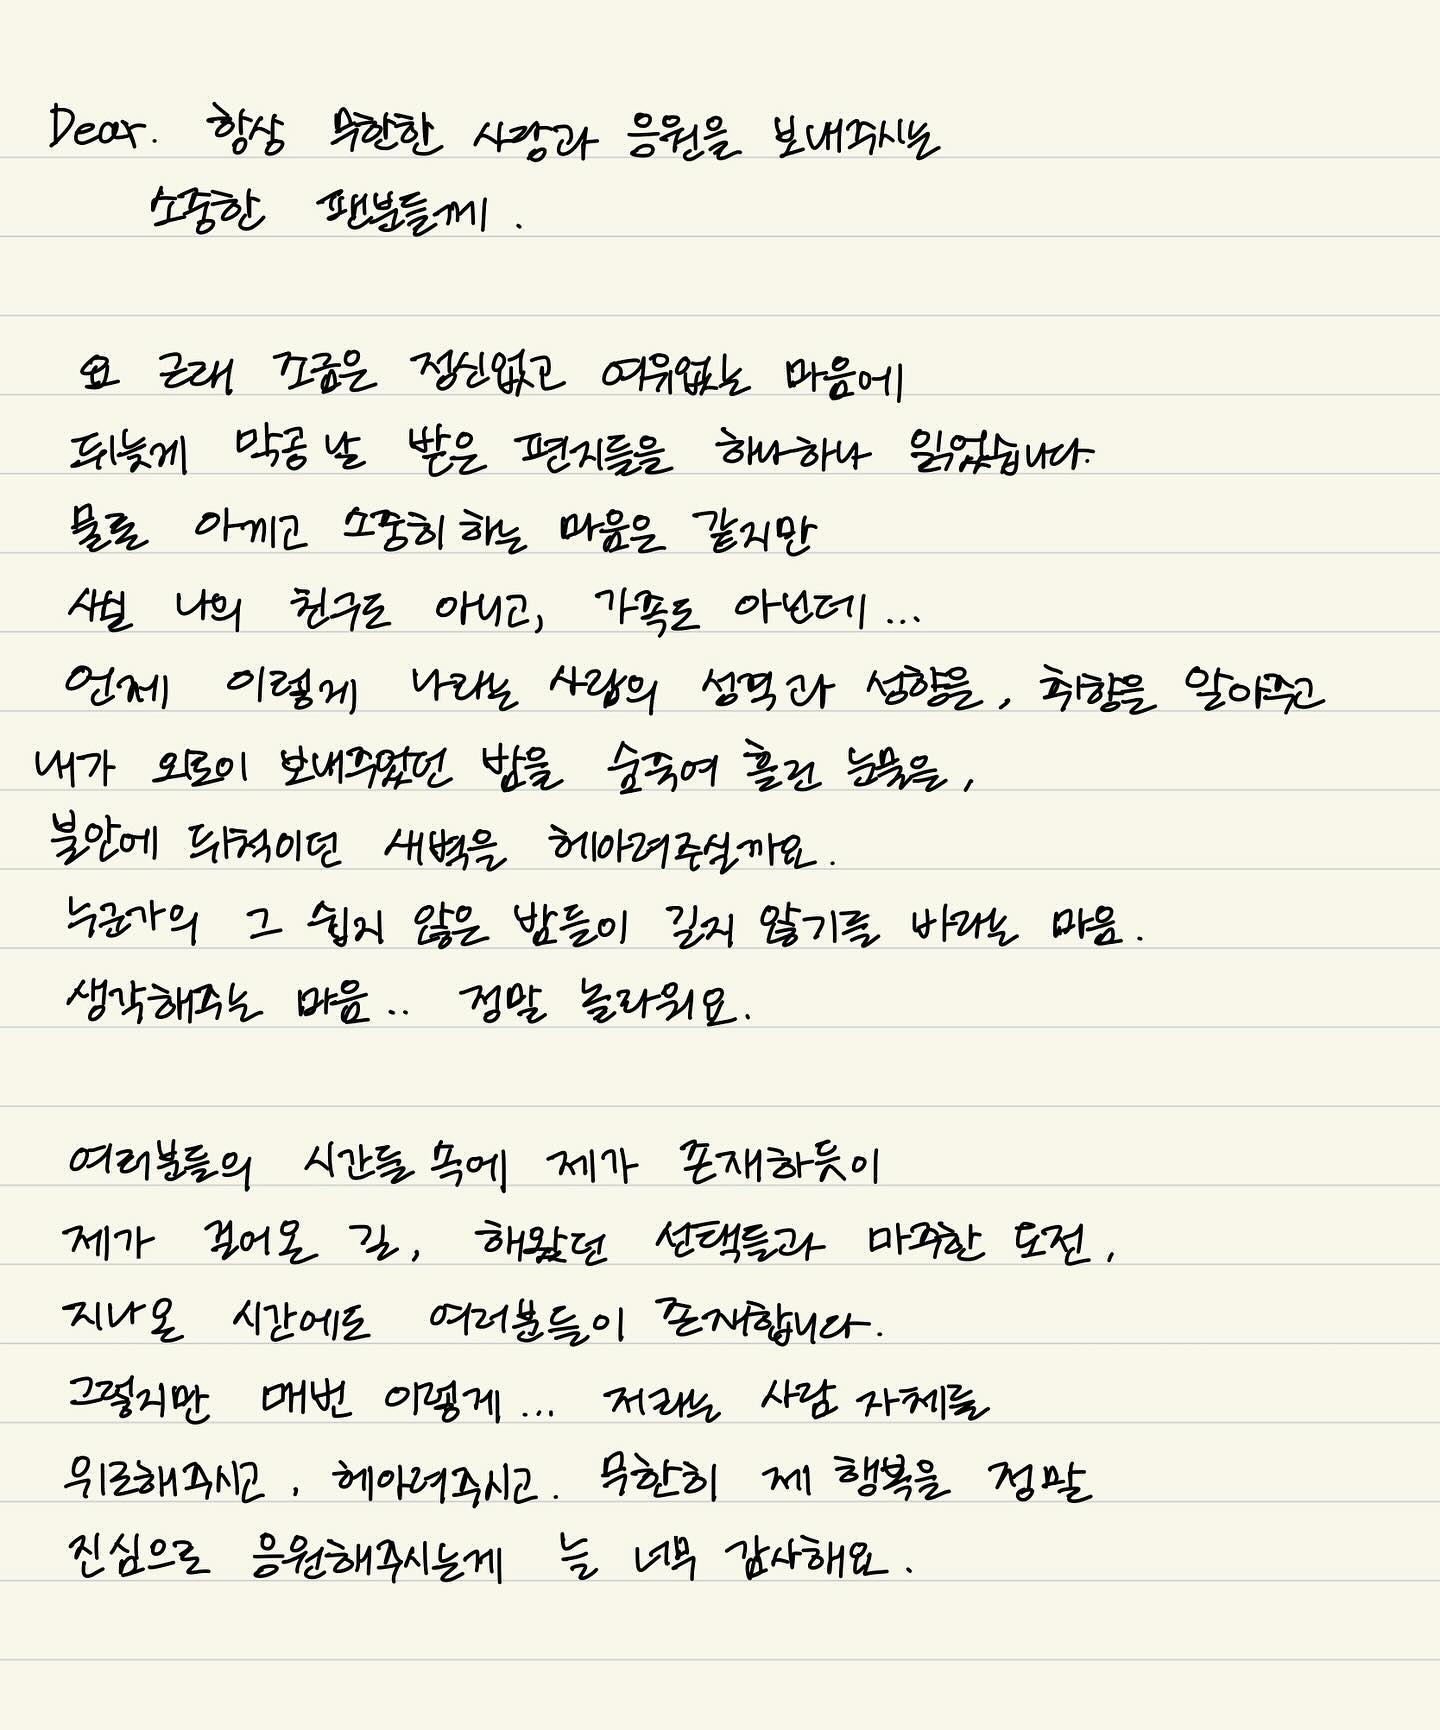 Dear. 항상 무한한 사랑과 응원을 보내주시는
소중한 팬분들께.
요 근래 조금은 정신없고 여유없는 마음에
뒤늦게 막공날 받은 편지들을 하나하나 읽었습니다.
물론 아끼고 소중히하는 마음은 같지만
사실 나의 친구도 아니고, 가족도 아닌데...
언제 이렇게 나라는 사람의 성격과 성향을, 취향을 알아주고
내가 외로이 보내주었던 밤을 숨죽여 흘린 눈물을,
불안에 뒤척이던 새벽을 헤아려주실까요.
누군가의 그 쉽지 않은 밤들이 길지 않기를 바라는 마음.
생각해주는 마음.. 정말 놀라워요.
여러분들의 시간들 속에 제가 존재하듯이
제가 걸어온 길, 해왔던 선택들과 마주한 도전,
지나온 시간에도 여러분들이 존재합니다.
그렇지만 매번 이렇게... 저라는 사람 자체를
위로해주시고, 헤아려주시고. 무한히 제 행복을 정말
진심으로 응원해주시는게 늘 너무 감사해요.